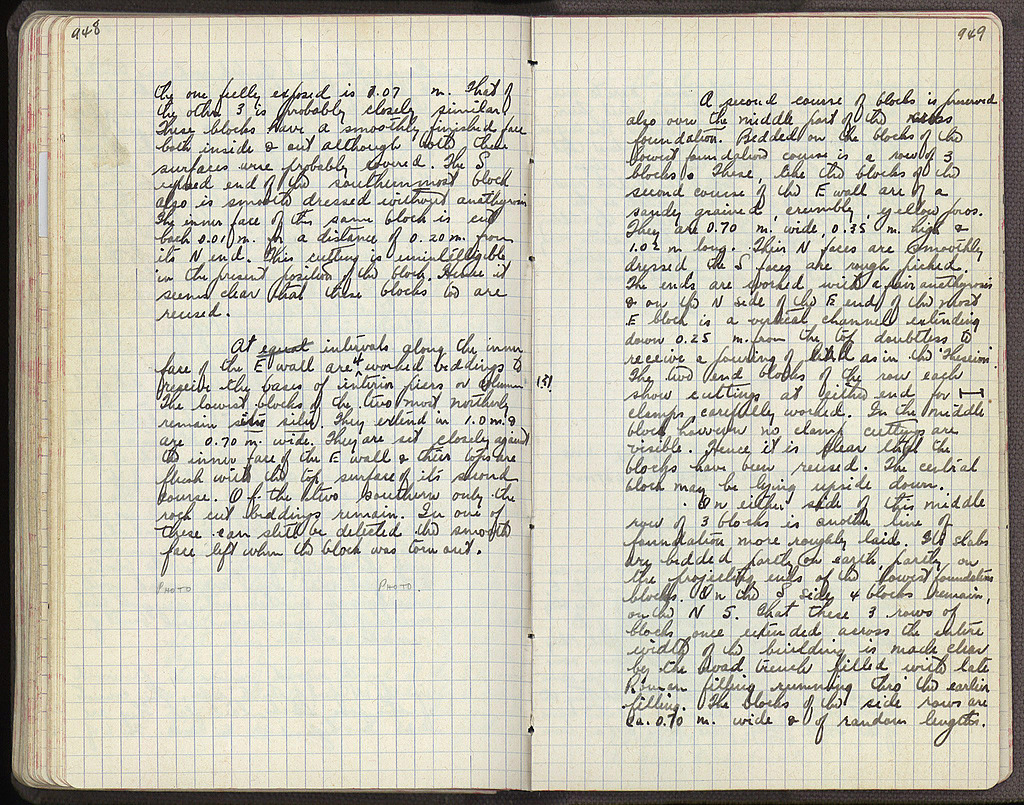 948
the one fully exposed is 0.07 m. That of
the other 3 is probably closely similar.
These blocks have a smoothly finished face
both inside & out although both these
surfaces were probably covered. The S
exposed end of the southernmost block
also is smooth dressed without anathyrosis
The inner face of this same block is cut
back 0.01 m. for a distance of 0.20 m. from
its N end. This cutting is unintelligible
in the present position of the block. Hence it
seems clear that these blocks too are
reused.
At equal intervals along the inner
face of the E wall are 4 worked beddings to
receive the bases of interior piers or columns
The lowest blocks of the two most northerly
remain in situ. They extend in 1.0 m. &
are 0.70 m. wide. They are set closely against
the inner face of the E wall & their tops are
flush with the top surface of its second
course. Of the two southern only the
rock cut beddings remain. In one of
these can still be detected the smooth
face left when the block was torn out.
PHOTO PHOTO.
949
A second course of blocks is preserved
also over the middle part of the
foundation. Bedded on the blocks of the
lowest foundation course is a row of 3
blocks. These, like the blocks of the
second course of the E wall are of a
sandy grained, crumbly, yellow poros.
They are 0.70 m. wide, 0.35 m. high &
1.02 m long. Their N faces are smoothly
dressed the S faces are rough picked.
The ends are worked with a fair anathyrosis
& on the N side of the E end of the most
E block is a vertical channel extending
down 0.25 m. from the top doubtless to
receive a pouring of lead as in the "Theseion".
151 The two end blocks of the row each
show cuttings at either end for
clamps carefully worked. In the middle
block however no clamp cuttings are
visible. Hence it is clear that the
blocks have been reused. The central
block may be lying upside down.
On either side of this middle
row of 3 blocks is another line of
foundation more roughly laid. Its slabs
are bedded partly on earth, partly on
the projecting ends of the lowest foundation
blocks. On the S side 4 blocks remain,
on the N 5. That these 3 rows of
blocks once extended across the entire
width of the building is made clear
by the broad trench filled with late
Roman filling running thro' the earlier
filling. The blocks of the side rows are
ca. 0.70 m. wide & of random lengths.